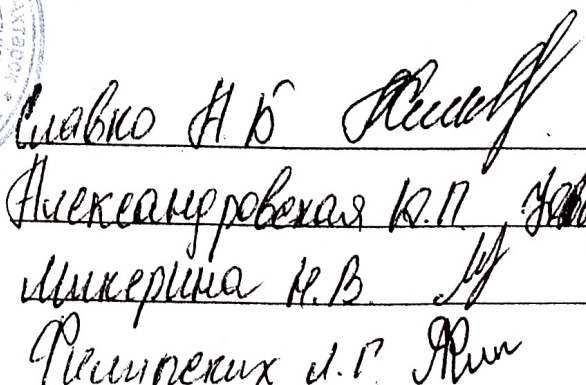 Славко Н Б
Александровская Ю.П.
Микерина Н.В.
Филипских Л.Г.